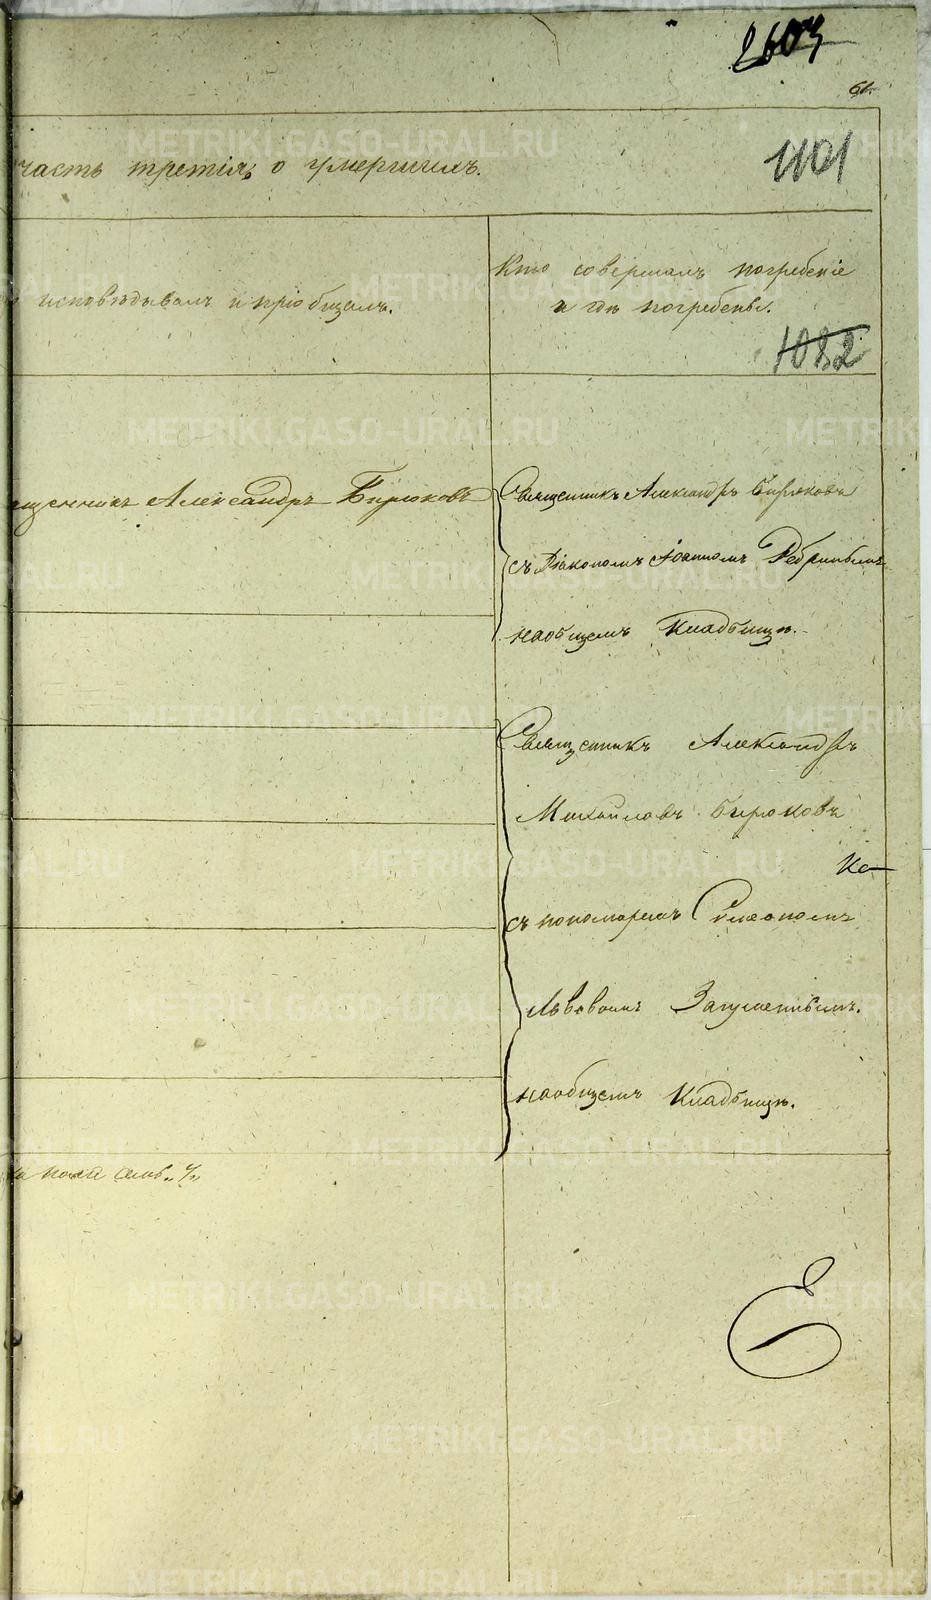 2603
61.
часть третія, о умершихъ.
1101
исповѣдывалъ и пріобщалъ.
Кто совершалъ погребеніе
и гдѣ погребены.
1082
щенникъ Александръ Бирюковъ
Священникъ Александръ Бирюковъ
съ Діакономъ Іоанномъ
на общемъ Кладбищѣ.
Священникъ Александръ
Михайловъ Бирюковъ
съ пономаремъ Симеономъ
Львовымъ
на общемъ Кладбищѣ.
METRIKI.GASO-URAL.RU